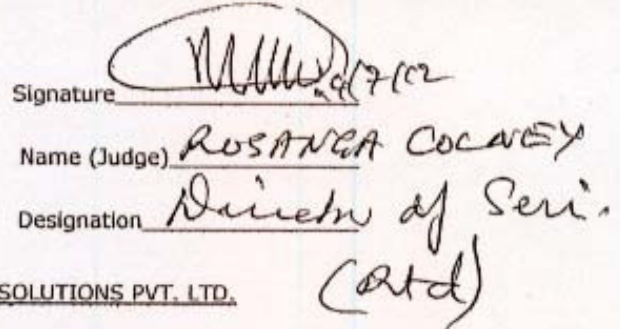 Signature 9/7/12
Name (Judge) ROSANGA COLNEY
Designation Director of Seri.
(Rtd)
SOLUTIONS PVT. LTD.